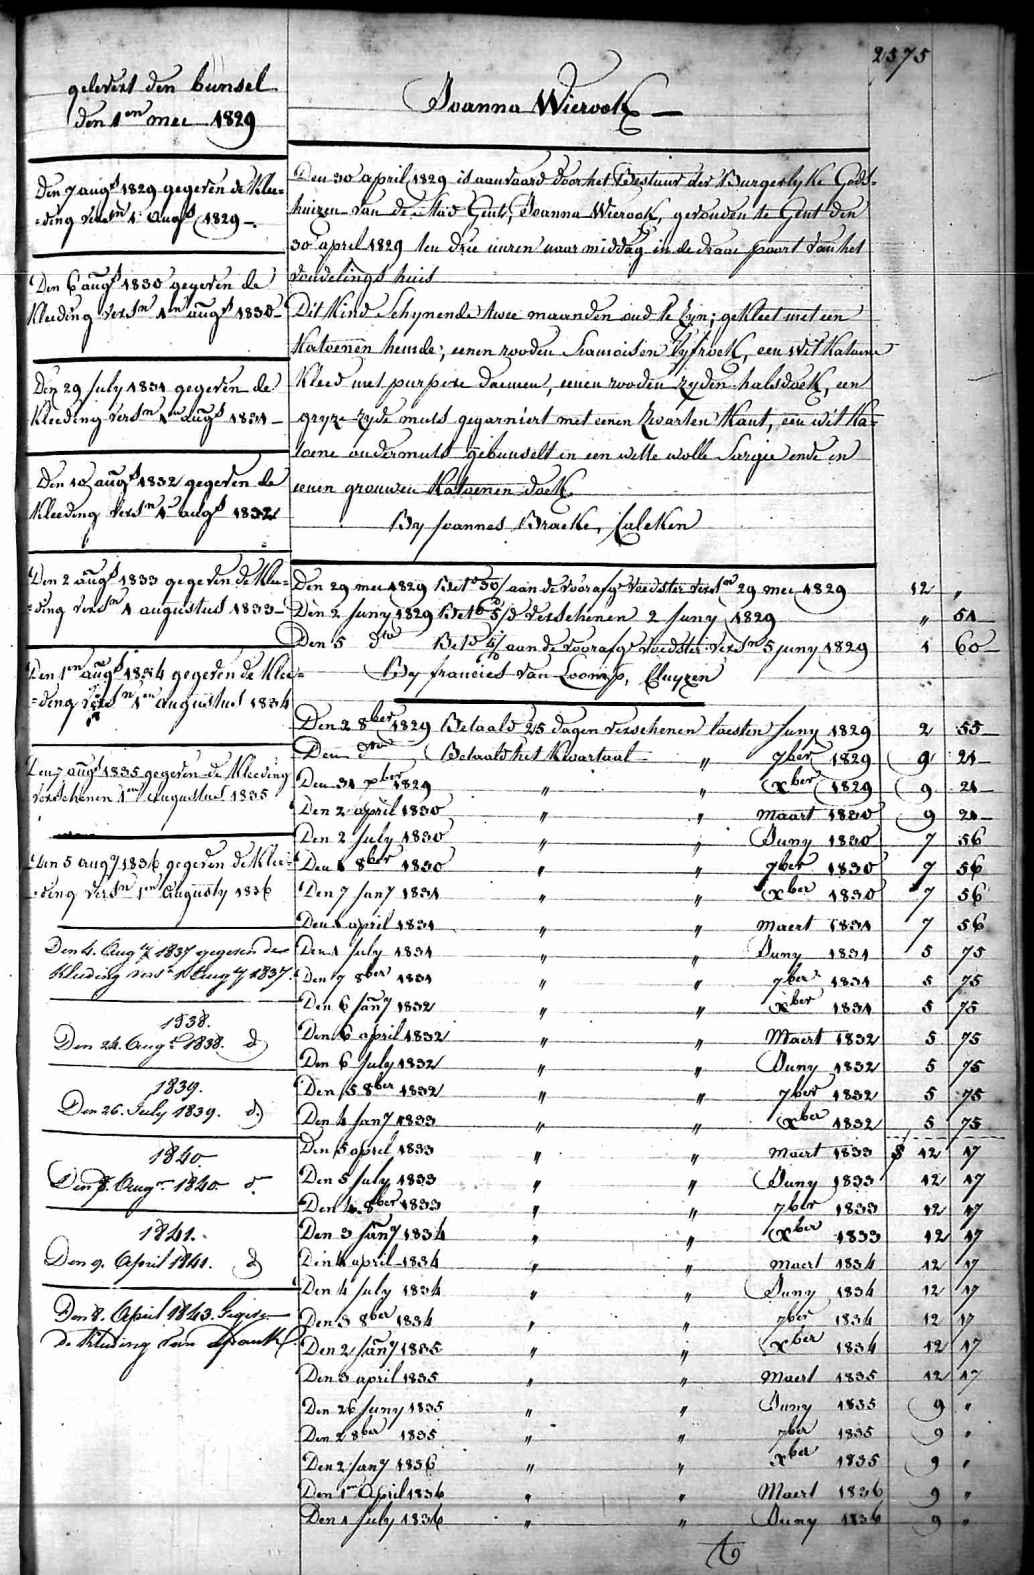 2575
gelevert den bunsel
den 1en mei 1829
Den 7 augs 1829 gegeven de Klee=
=ding versn 1 augs 1829 -
Den 6 augs 1830 gegeven de
Kleeding versn 1en augs 1830 -
Den 29 July 1831 gegeven de
Kleeding versn 1en augs 1831 -
Den 10 augs 1832 gegeven de
Kleeding versn 1 augs 1832
Den 2 augs 1833 gegeven de Klee=
=ding versn 1 augustus 1833 -
Den 1en augs 1834 gegeven de Klee=
=ding versn 1en augustus 1834
Den 7 augs 1835 gegeven de Kleeding
verschenen 1en augustus 1835
Den 5 augs 1836 gegeven de Klee=
=ding versn 1en augusty 1836
Den 4. Augy 1837 gegeven de
Kleeding vers 1 Augy 1837.
1838.
Den 24. Aug. 1838. d
1839.
Den 26. July 1839. d
1840.
Den 7. Aug. 1840. d.
1841.
Den 9. April 1841. d
Den 8. April 1843. Gegeven
de Kleeding van
Joanna Wierook —
Den 30 april 1829 is aanvaard door het Bestuur der Burgerlyke Gods-
huizen van de Stad Gent, Joanna Wierook, gevonden te Gent den
30 april 1829 ten drie uuren naar middag in de draai poort van het
vondelings huis
Dit Kind Schynende twee maanden oud te Zyn; gekleet met een
Katoenen hemde; eenen rooden Siamoisen Lyfrock, een wit Katoene
Kleed met purpere bloemen, eenen rooden zyden halsdoek, een
gryze zyde muts gegarniert met eenen Zwarten Kant, een wit Ka=
toene ondermuts gebunselt in een witte wolle Sargie ende in
eenen grouwen Katoenen doek
By Joannes Bracke, Calcken
Den 29 mei 1829 Bet. 30/ aan de voorafge voedster versn 29 mei 1829 12 "
Den 2 Juny 1829 Bet. 5/d verschenen 2 Juny 1829 " 51
Den 5 dto Bet. aan de voorafge voedster versn 5 juny 1829 1 60
By francies van Looy, Cluyzen
Den 2 8ber 1829 Betaald 25 dagen verschenen laesten Juny 1829 2 55
Den dto Betaald het Kwartaal " 7ber 1829 9 21
Den 31 xber 1829 " " xber 1829 9 21
Den 2 april 1830 " " Maart 1830 9 21
Den 2 July 1830 " " Juny 1830 7 56
Den 8ber 1830 " " 7ber 1830 7 56
Den 7 Jany 1831 " " xber 1830 7 56
Den 1 april 1831 " " Maert 1831 7 56
Den 1 July 1831 " " Juny 1831 5 75
Den 7 8ber 1831 " " 7ber 1831 5 75
Den 6 Jany 1832 " " xber 1831 5 75
Den 6 april 1832 " " Maert 1832 5 75
Den 6 July 1832 " " Juny 1832 5 75
Den 5 8ber 1832 " " 7ber 1832 5 75
Den 4 Jany 1833 " " xber 1832 5 75
Den 5 april 1833 " " Maert 1833 12 17
Den 5 July 1833 " " Juny 1833 12 17
Den 4 8ber 1833 " " 7ber 1833 12 17
Den 3 Jany 1834 " " xber 1833 12 17
Den 4 april 1834 " " Maert 1834 12 17
Den 4 July 1834 " " Juny 1834 12 17
Den 3 8ber 1834 " " 7ber 1834 12 17
Den 2 Jany 1835 " " xber 1834 12 17
Den 3 april 1835 " " Maert 1835 12 17
Den 26 Juny 1835 " " Juny 1835 9 "
Den 2 8ber 1835 " " 7ber 1835 9 "
Den 2 Jany 1836 " " xber 1835 9 "
Den 1en April 1836 " " Maert 1836 9 "
Den 1 July 1836 " " Juny 1836 9 "